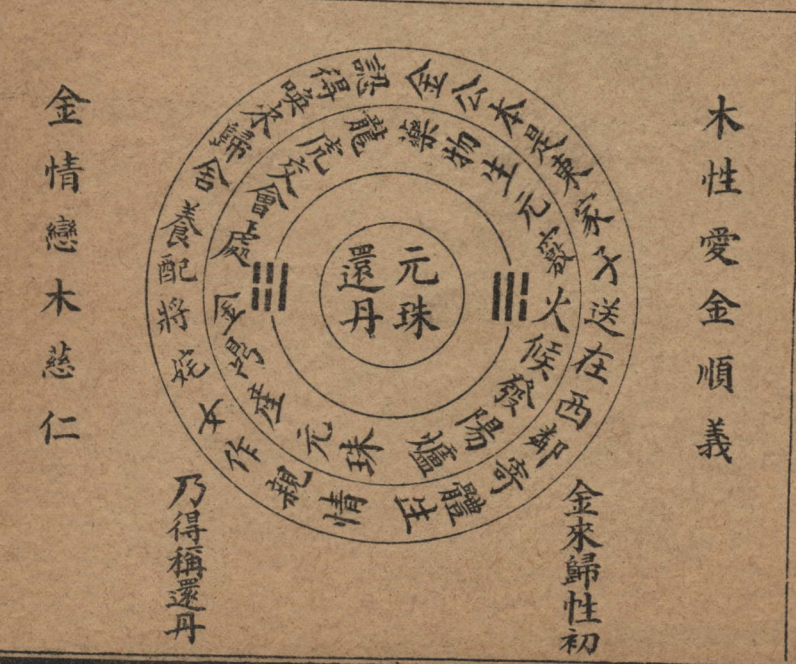 木性愛金順義
金情戀木慈仁
金公本是東家子送在西鄰寄體生
認得喚來歸舍養配將姹女作親情
藥物生元竅火候發陽爐
龍虎交會處金鼎產元珠
元珠
還丹
金來歸性初
乃得稱還丹